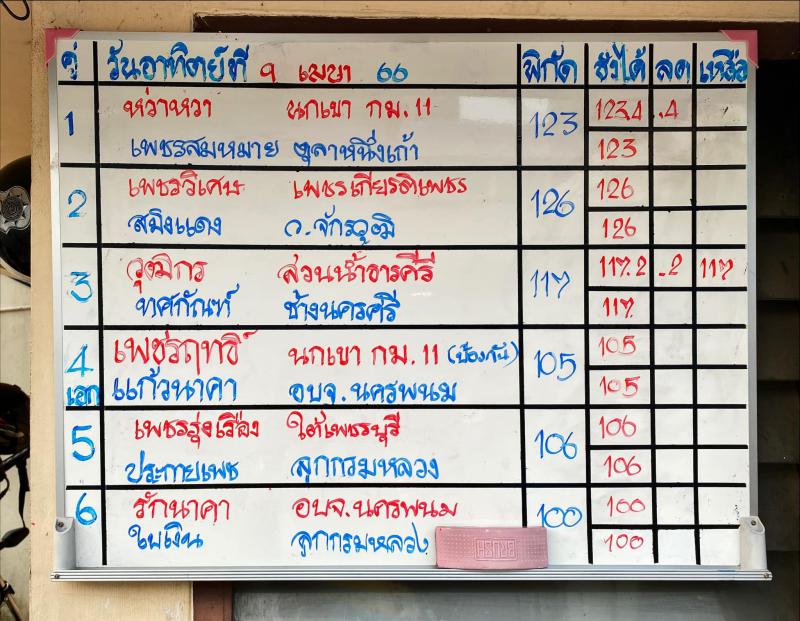 คู่ วันอาทิตย์ที่ 9 เมษา 66 พิกัด ชั่งได้ ลด เหลือ
1 หว้าหวา นกเขา กม.11 123 123.4 .4
เพชรสมหมาย ตุลาหนึ่งเก้า 123
2 เพชรวิเศษ เพชรเกียรติเพชร 126 126
สมิงแดง ว.จักรวุฒิ 126
3 วุฒิกร สวนน้ำธารคีรี 117 117.2 .2 117
ทศกัณฑ์ ช้างนครศรี 117
4 เพชรฤทธิ์ นกเขา กม.11 (ป้องกัน) 105 105
เอก แก้วนาคา อบจ.นครพนม 105
5 เพชรรุ่งเรือง ใต้เพชรบุรี 106 106
ประกายเพช ลูกกรมหลวง 106
6 รักนาคา อบจ.นครพนม 100 100
ใบเงิน ลูกกรมหลวง 100